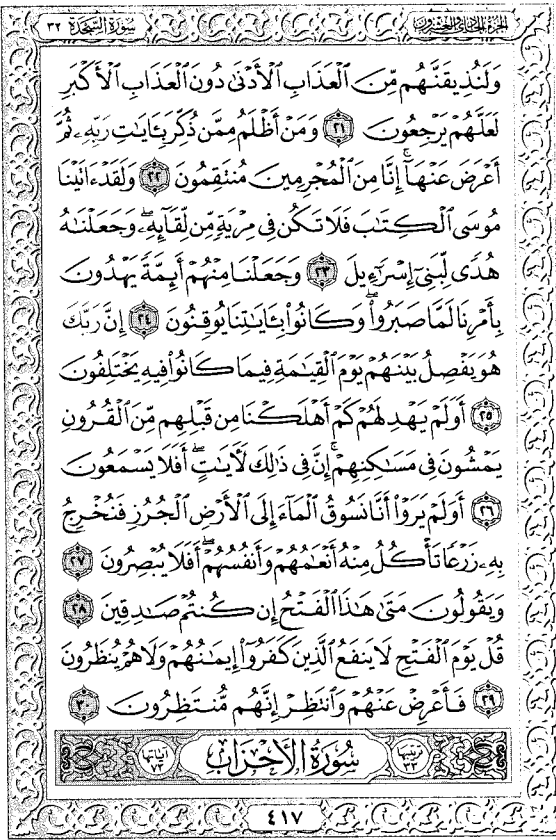 الجزء الحادي والعشرون سورة السجدة ٣٢
وَلَنُذِيقَنَّهُم مِّنَ ٱلْعَذَابِ ٱلْأَدْنَىٰ دُونَ ٱلْعَذَابِ ٱلْأَكْبَرِ
لَعَلَّهُمْ يَرْجِعُونَ ٢١ وَمَنْ أَظْلَمُ مِمَّن ذُكِّرَ بِـَٔايَـٰتِ رَبِّهِۦ ثُمَّ
أَعْرَضَ عَنْهَآ ۚ إِنَّا مِنَ ٱلْمُجْرِمِينَ مُنتَقِمُونَ ٢٢ وَلَقَدْ ءَاتَيْنَا
مُوسَى ٱلْكِتَـٰبَ فَلَا تَكُن فِى مِرْيَةٍ مِّن لِّقَآئِهِۦ ۖ وَجَعَلْنَـٰهُ
هُدًى لِّبَنِىٓ إِسْرَٰٓءِيلَ ٢٣ وَجَعَلْنَا مِنْهُمْ أَئِمَّةً يَهْدُونَ
بِأَمْرِنَا لَمَّا صَبَرُوا۟ ۖ وَكَانُوا۟ بِـَٔايَـٰتِنَا يُوقِنُونَ ٢٤ إِنَّ رَبَّكَ
هُوَ يَفْصِلُ بَيْنَهُمْ يَوْمَ ٱلْقِيَـٰمَةِ فِيمَا كَانُوا۟ فِيهِ يَخْتَلِفُونَ
٢٥ أَوَلَمْ يَهْدِ لَهُمْ كَمْ أَهْلَكْنَا مِن قَبْلِهِم مِّنَ ٱلْقُرُونِ
يَمْشُونَ فِى مَسَـٰكِنِهِمْ ۚ إِنَّ فِى ذَٰلِكَ لَـَٔايَـٰتٍ ۖ أَفَلَا يَسْمَعُونَ
٢٦ أَوَلَمْ يَرَوْا۟ أَنَّا نَسُوقُ ٱلْمَآءَ إِلَى ٱلْأَرْضِ ٱلْجُرُزِ فَنُخْرِجُ
بِهِۦ زَرْعًا تَأْكُلُ مِنْهُ أَنْعَـٰمُهُمْ وَأَنفُسُهُمْ ۖ أَفَلَا يُبْصِرُونَ ٢٧
وَيَقُولُونَ مَتَىٰ هَـٰذَا ٱلْفَتْحُ إِن كُنتُمْ صَـٰدِقِينَ ٢٨
قُلْ يَوْمَ ٱلْفَتْحِ لَا يَنفَعُ ٱلَّذِينَ كَفَرُوٓا۟ إِيمَـٰنُهُمْ وَلَا هُمْ يُنظَرُونَ
٢٩ فَأَعْرِضْ عَنْهُمْ وَٱنتَظِرْ إِنَّهُم مُّنتَظِرُونَ ٣٠
ترتيبها ٣٣ سُورَةُ الأَحْزَابِ آياتها ٧٣
٤١٧